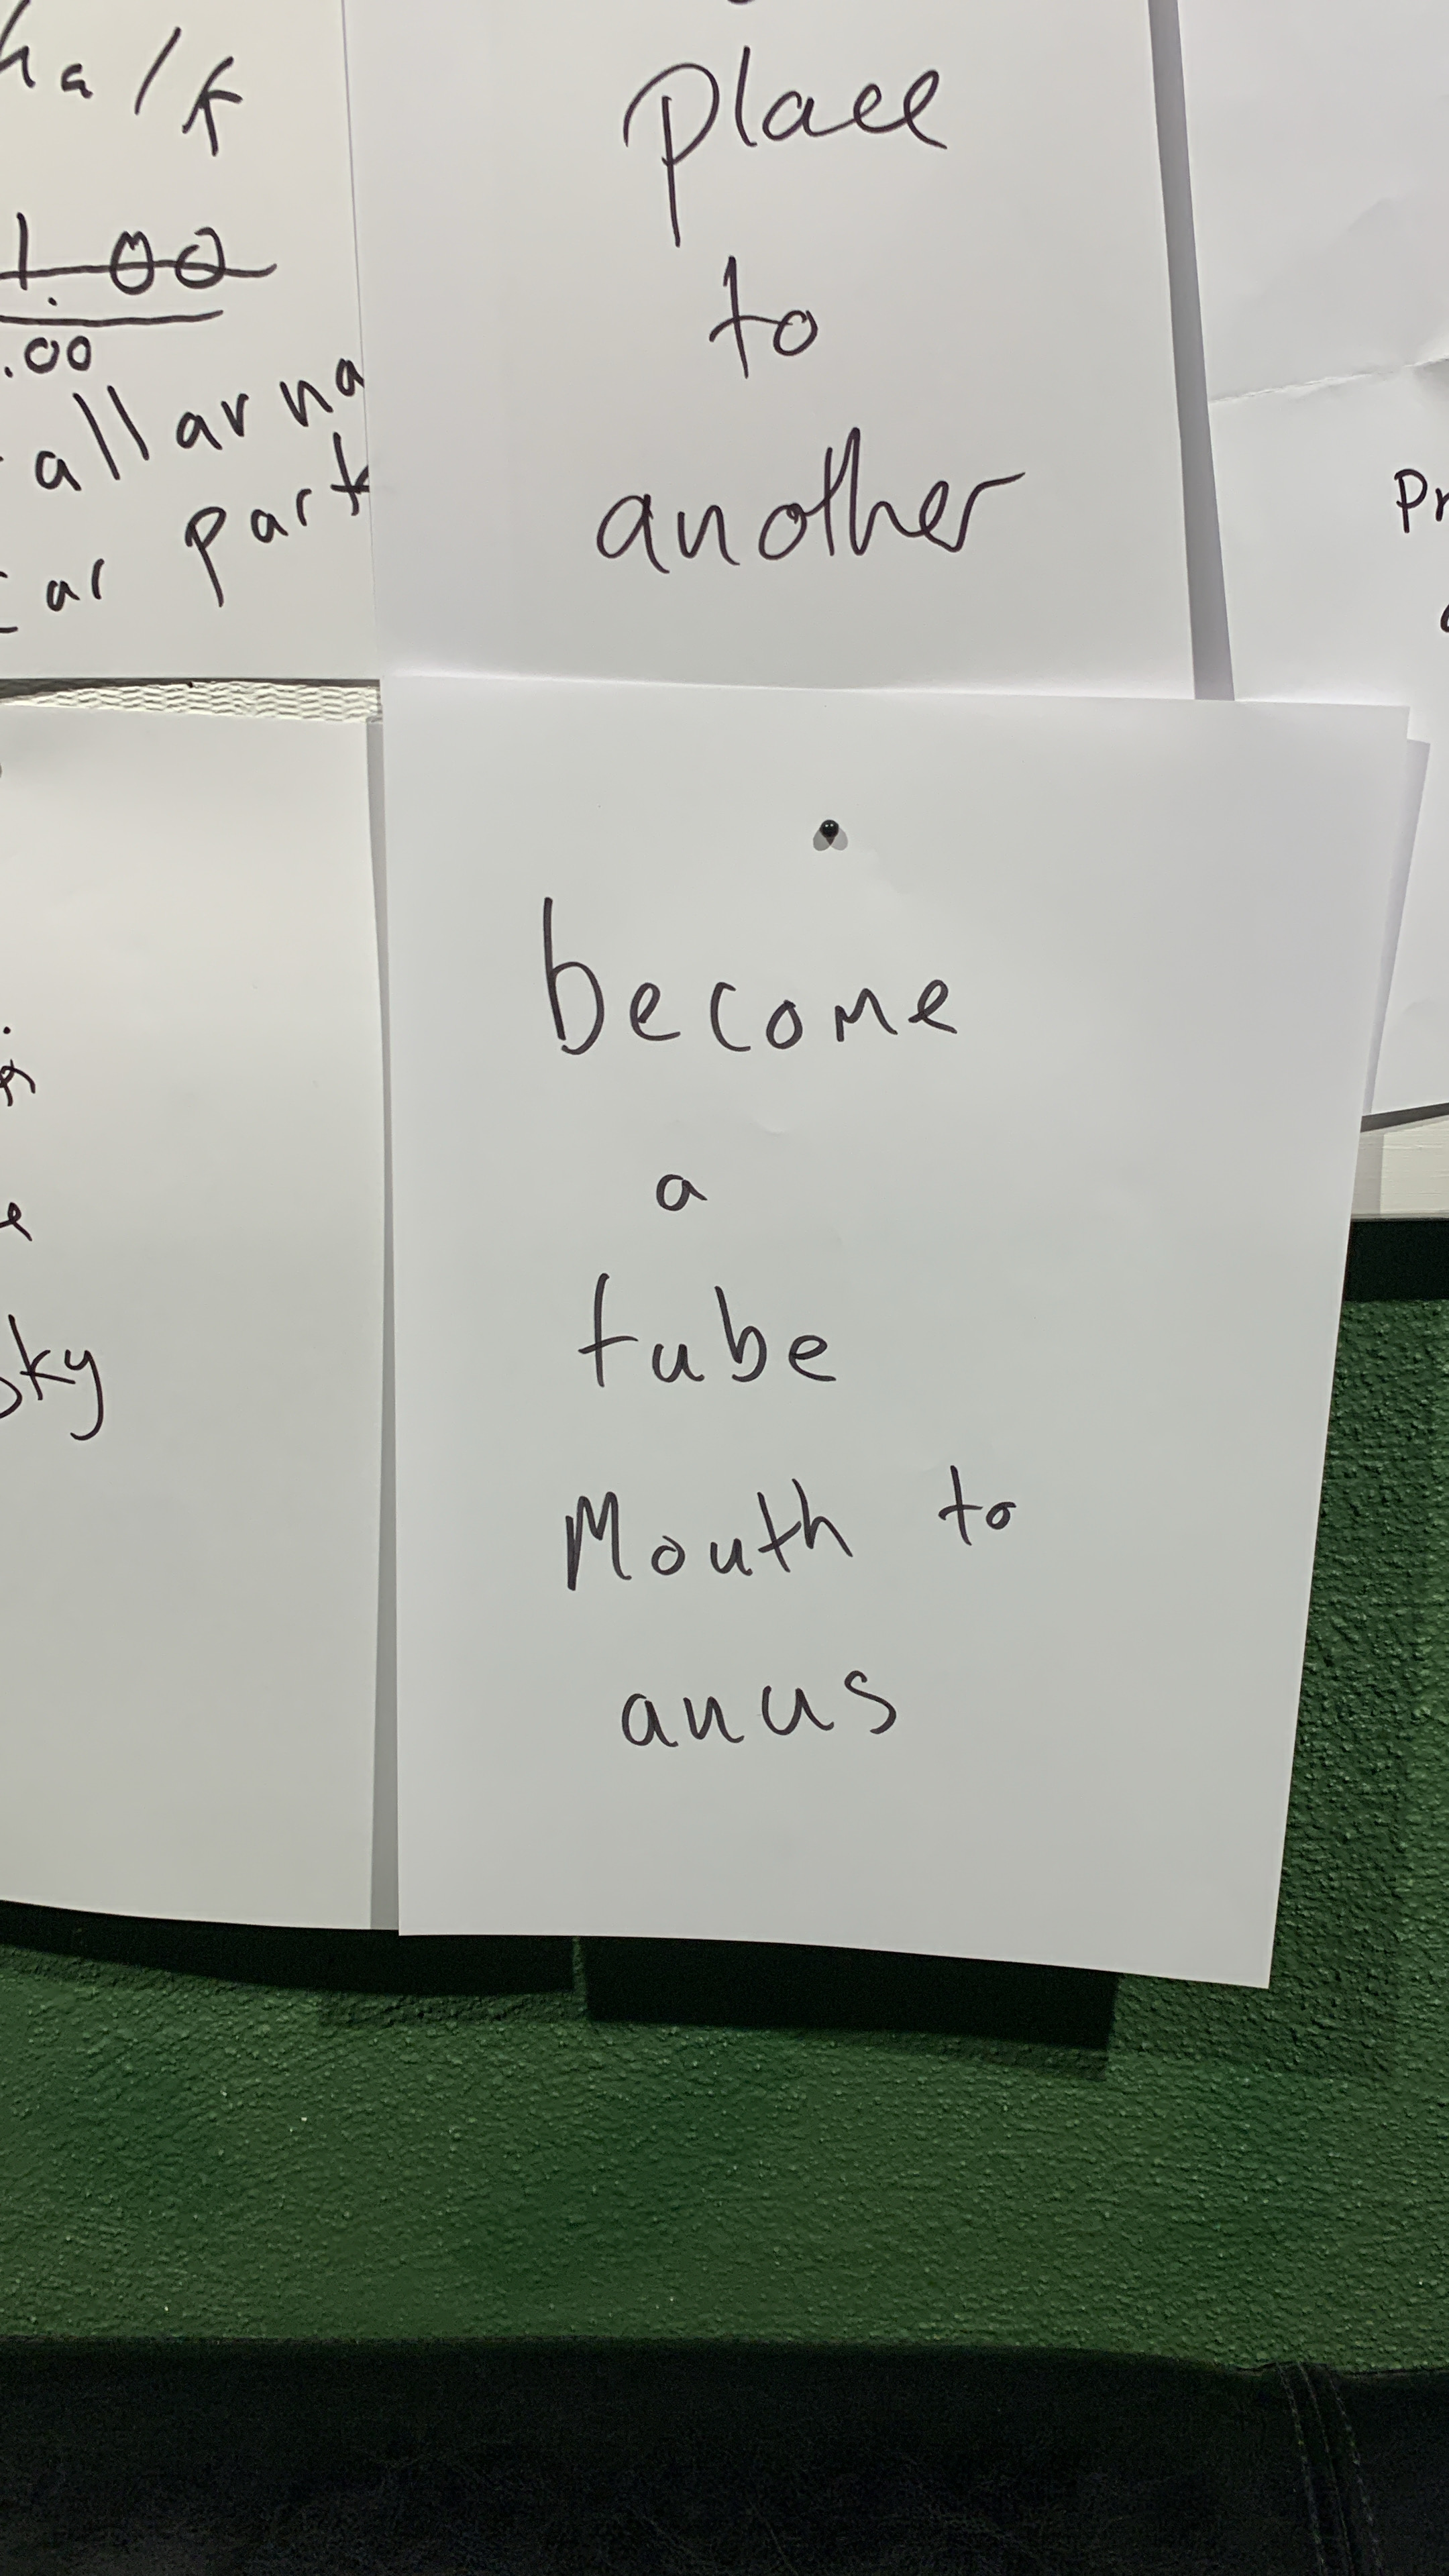 half
1.00
.00
allarna
car park
place
to
another
become
a
tube
Mouth to
anus
sky